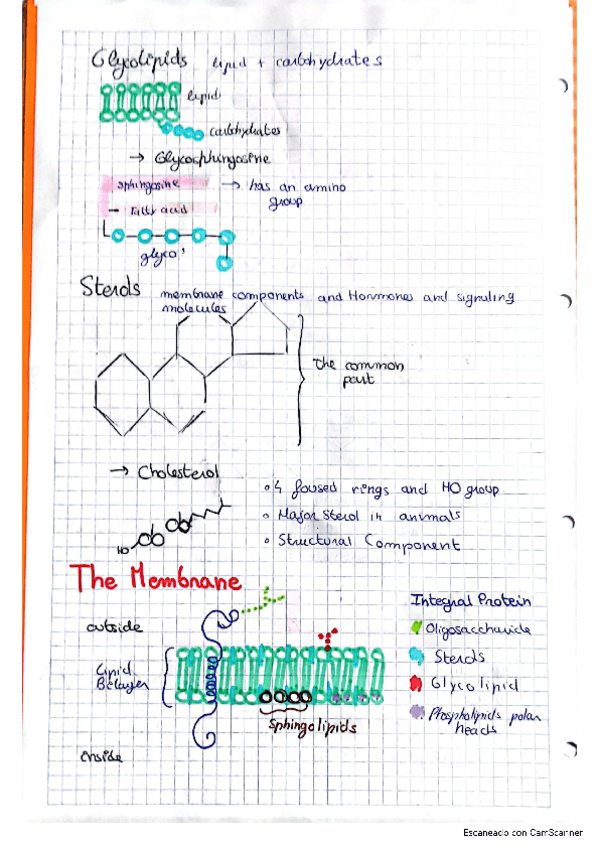 Glycolipids lipid + carbohydrates
lipid
carbohydrates
→ Glycosphingosine
sphingosine → has an amino
group
- Fatty acid
glyco'
Steroids membrane components and Hormones and signuling
molecules
the common
part
→ Cholesterol
• 4 foused rings and HO group
• Major Sterol in animals
• Structural Component
HO
The Membrane
Integral Protein
outside
Oligosaccharide
Steroids
Lipid
Belayer
Glycolipid
Phospholipids polar
heads
Sphingolipids
inside
Escaneado con CamScanner